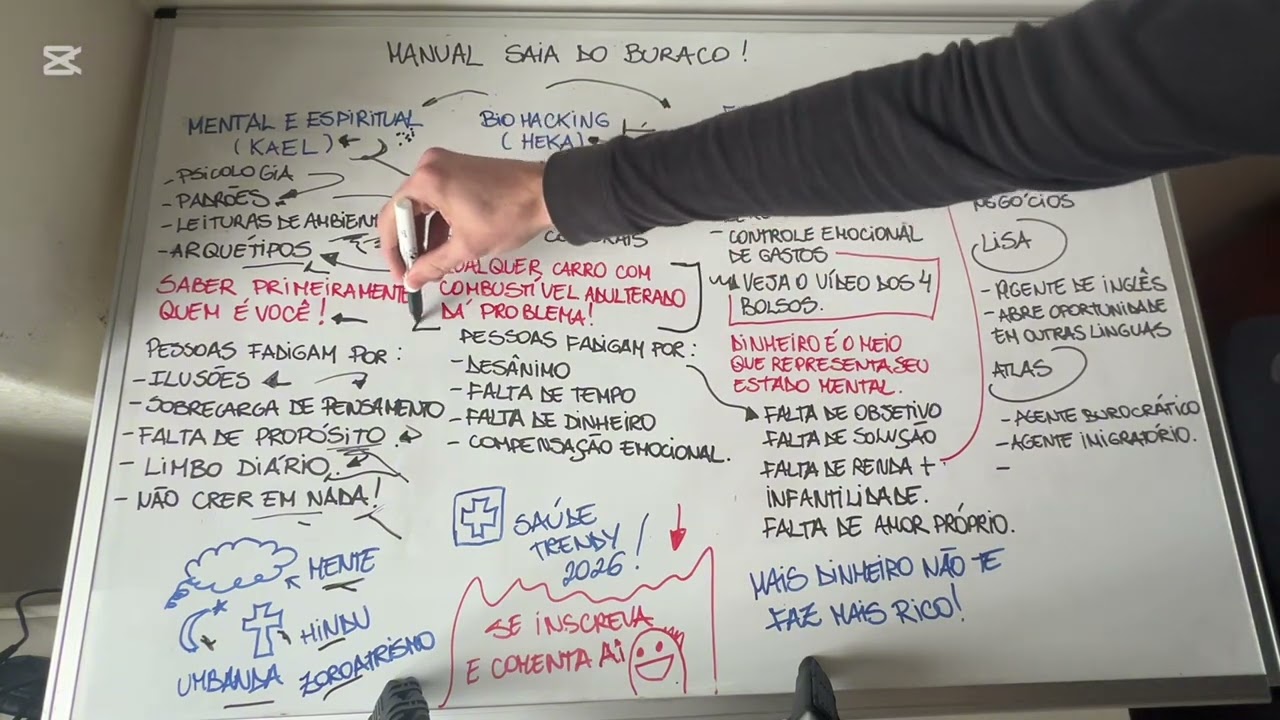 MANUAL SAIA DO BURACO!
MENTAL E ESPIRITUAL
(KAEL)
- PSICOLOGIA
- PADRÕES
- LEITURAS DE AMBIEN
- ARQUÉTIPOS
SABER PRIMEIRAMENTE
QUEM É VOCÊ!
PESSOAS FADIGAM POR:
- ILUSÕES
- SOBRECARGA DE PENSAMENTO
- FALTA DE PROPÓSITO
- LIMBO DIÁRIO.
- NÃO CRER EM NADA!
MENTE
HINDU
UMBANDA
ZOROATRISMO
BIOHACKING
(HEKA)
QUALQUER CARRO COM
COMBUSTÍVEL ADULTERADO
DÁ PROBLEMA!
PESSOAS FADIGAM POR:
- DESÂNIMO
- FALTA DE TEMPO
- FALTA DE DINHEIRO
- COMPENSAÇÃO EMOCIONAL.
SAÚDE
TRENDY
2026!
SE INSCREVA
E COMENTA AÍ
- CONTROLE EMOCIONAL
DE GASTOS
VEJA O VÍDEO DOS 4
BOLSOS.
DINHEIRO É O MEIO
QUE REPRESENTA SEU
ESTADO MENTAL.
FALTA DE OBJETIVO
FALTA DE SOLUÇÃO
FALTA DE RENDA +
INFANTILIDADE.
FALTA DE AMOR PRÓPRIO.
MAIS DINHEIRO NÃO TE
FAZ MAIS RICO!
NEGÓCIOS
LISA
- AGENTE DE INGLÊS
- ABRE OPORTUNIDADE
EM OUTRAS LINGUAS
ATLAS
- AGENTE BUROCRÁTICO
- AGENTE IMIGRATÓRIO.
-